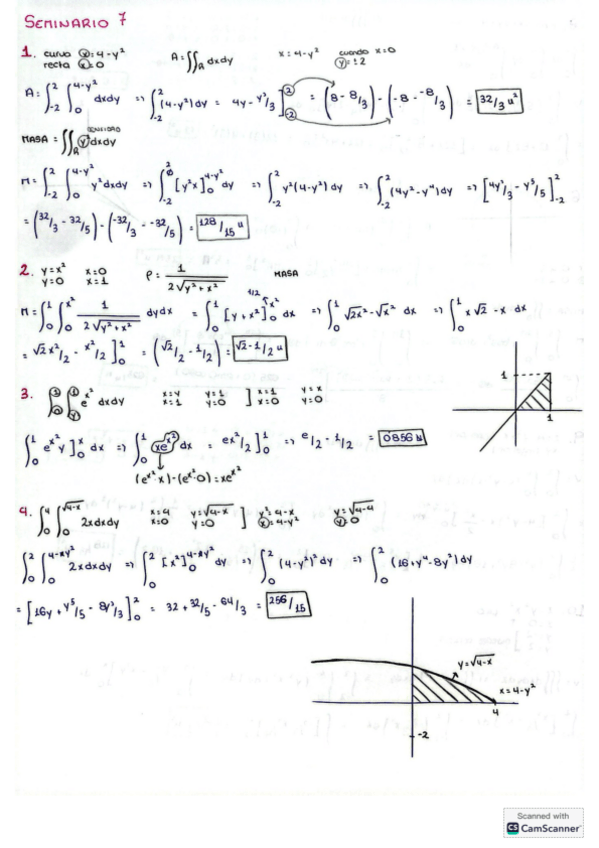 SEMINARIO 7
1. curva x=4-y² A=∬_R dxdy x=4-y² cuando x=0
recta x=0 y=±2
A=∫_{-2}^{2}∫_{0}^{4-y²} dxdy ⇒ ∫_{-2}^{2}(4-y²)dy = 4y-y³/3]_{-2}^{2} = (8-8/3)-(-8--8/3) = 32/3 u²
MASA=∬_R y² dxdy DENSIDAD
M=∫_{-2}^{2}∫_{0}^{4-y²} y²dxdy ⇒ ∫_{-2}^{2}[y²x]_{0}^{4-y²}dy ⇒ ∫_{-2}^{2} y²(4-y²)dy ⇒ ∫_{-2}^{2}(4y²-y⁴)dy ⇒ [4y³/3-y⁵/5]_{-2}^{2}
=(32/3-32/5)-(-32/3--32/5)= 128/15 u
2. y=x² x=0 ρ=1/(2√(y²+x²)) MASA
y=0 x=1
M=∫_{0}^{1}∫_{0}^{x²} 1/(2√(y²+x²)) dydx = ∫_{0}^{1}[y+x²]_{0}^{x²} dx ⇒ ∫_{0}^{1}√2x²-√x² dx ⇒ ∫_{0}^{1} x√2-x dx
=√2x²/2-x²/2]_{0}^{1} = (√2/2-1/2) = √2-1/2 u
3. e^{x²} dxdy x=y y=1 ] x=1 y=x
x=1 y=0 x=0 y=0
1
1
∫_{0}^{1} e^{x²}y]_{0}^{x} dx ⇒ ∫_{0}^{1} xe^{x²}dx = e^{x²}/2]_{0}^{1} ⇒ e/2-1/2 = 0'856 u
(e^{x²}·x)-(e^{x²}·0)=xe^{x²}
4. ∫_{0}^{4}∫_{0}^{√4-x} 2xdxdy x=4 y=√4-x ] y²=4-x y=√4-4
x=0 y=0 x=4-y² y=0
2xdxdy ⇒ ∫_{0}^{2}[x²]dy ⇒ ∫_{0}^{2}(4-y²)²dy ⇒ ∫_{0}^{2}(16+y⁴-8y²)dy
=[16y+y⁵/5-8y³/3]_{0}^{2} = 32+32/5-64/3 = 256/15
y=√4-x
x=4-y²
4
-2
Scanned with
CS CamScanner